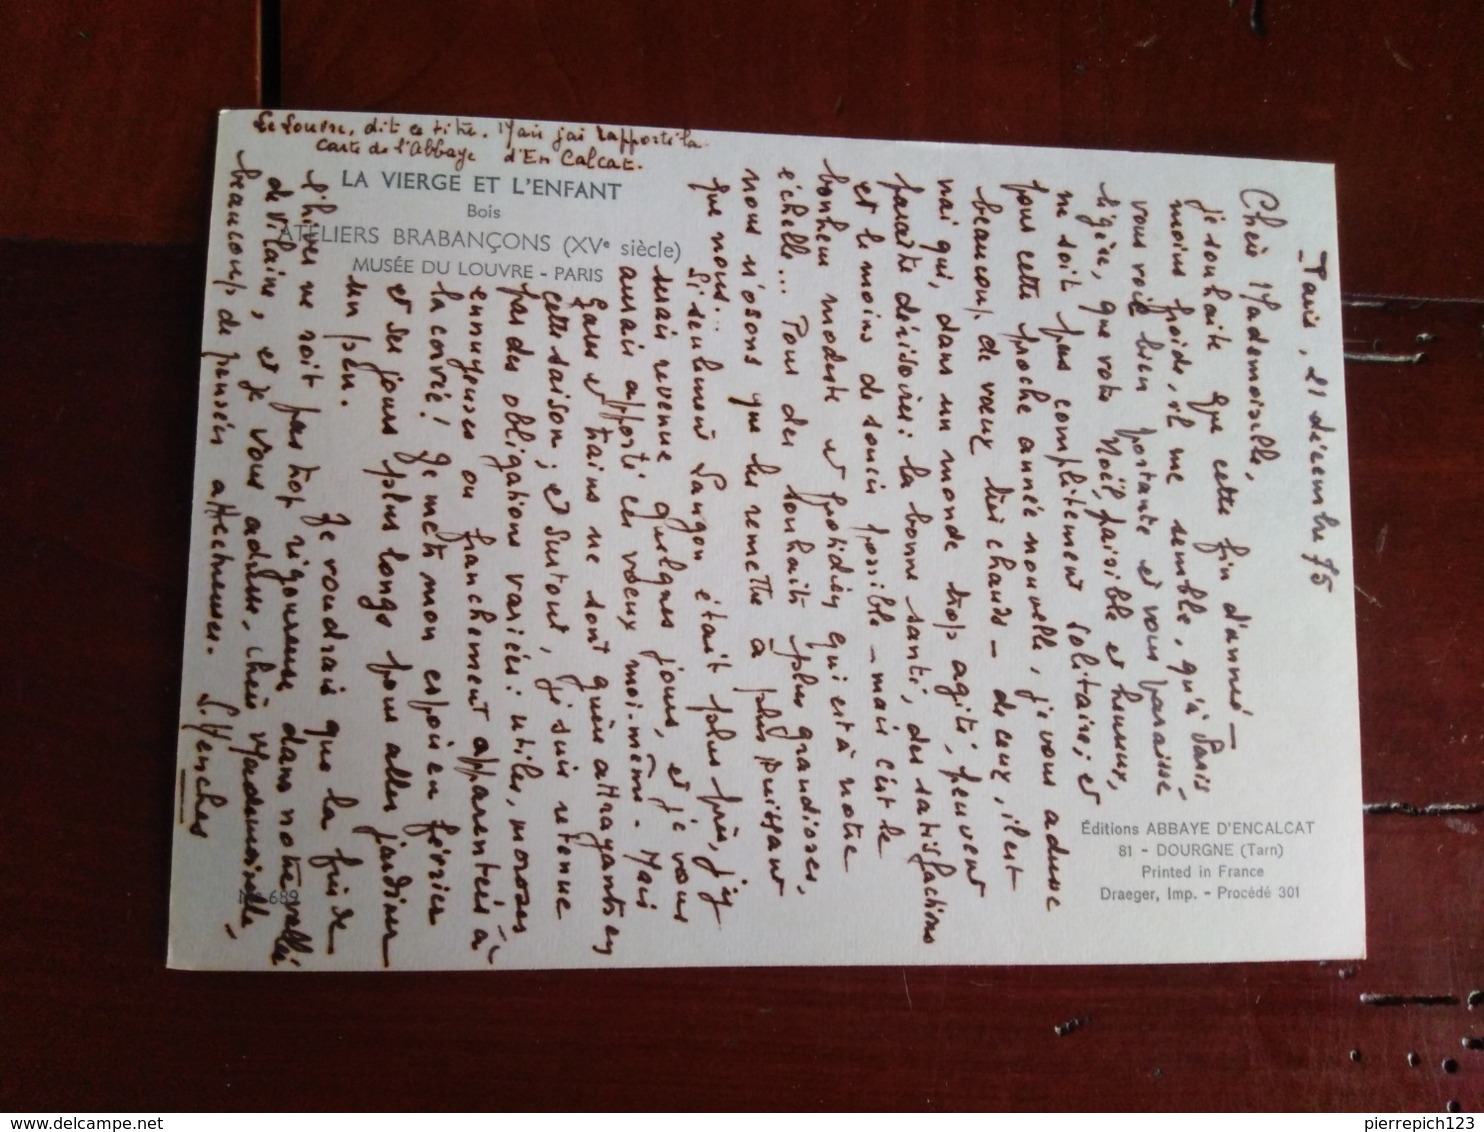 Le Louvre, dit ce titre. Mais j'ai rapporté la
carte de l'Abbaye d'En Calcat.
LA VIERGE ET L'ENFANT
Bois
ATELIERS BRABANÇONS (XVe siècle)
MUSÉE DU LOUVRE - PARIS
Paris, 21 décembre 75
Chère Mademoiselle,
je souhaite que cette fin d'année —
moins froide, il me semble, qu'à Paris —
vous voie bien portante et vous paraisse
légère, que votre Noël, paisible et heureux,
ne soit pas complètement solitaire; et
pour cette proche année nouvelle, je vous adresse
beaucoup de vœux très chauds — de ceux, il est
vrai qui, dans un monde trop agité, peuvent
paraître dérisoires: la bonne santé, des satisfactions
et le moins de soucis possible — mais c'est le
bonheur modeste et quotidien qui est à notre
échelle... Pour des souhaits plus grandioses,
nous n'osons que les remettre à plus puissant
que nous...
Si seulement Langon était plus près, j'y
serais revenue quelques jours, et je vous
aurais apporté ces vœux moi-même. Mais
gares et trains ne sont guère attrayants en
cette saison; et surtout, je suis retenue
par des obligations variées: utiles, moroses,
ennuyeuses ou franchement apparentées à
la corvée! Je mets mon espoir en février
et ses jours plus longs pour aller jardiner
un peu.
Je voudrais que la fin de
l'hiver ne soit pas trop rigoureuse dans notre vallée
de Vilaine, et je vous adresse, chère Mademoiselle,
beaucoup de pensées affectueuses.
Éditions ABBAYE D'ENCALCAT
81 - DOURGNE (Tarn)
Printed in France
Draeger, Imp. - Procédé 301
689
pierrepich123